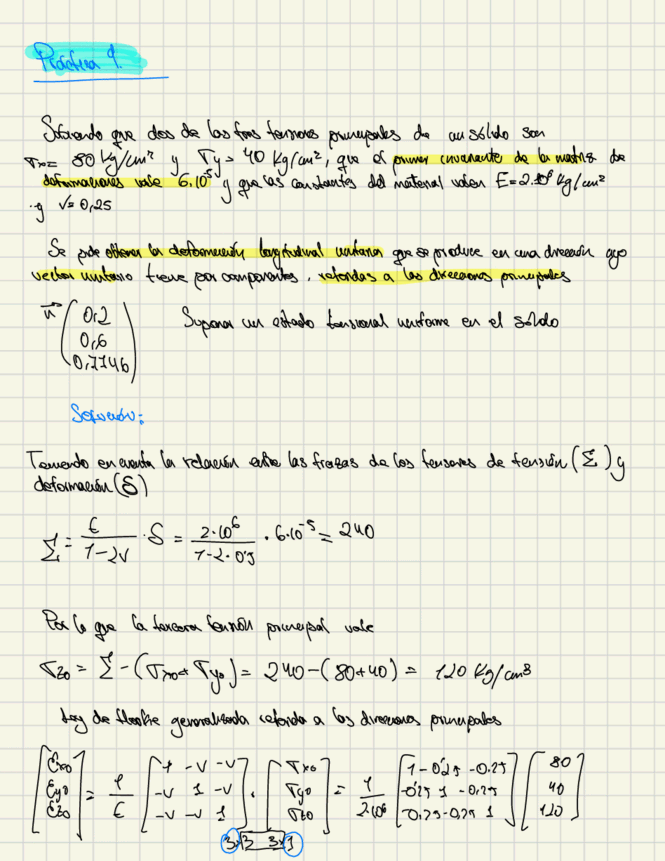 Práctica 1.
Sabiendo que dos de las tres tensiones principales de un sólido son
σxo= 80 kg/cm² y σyo= 40 kg/cm², que el primer invariante de la matriz de
deformaciones vale 6.10⁻⁵ y que las constantes del material valen E=2.10⁶ kg/cm²
y ν=0,25
Se pide obtener la deformación longitudinal unitaria que se produce en una dirección cuyo
vector unitario tiene por componentes, referidas a las direcciones principales
n⃗ (0,2
0,6
0,7746)
Suponer un estado tensional uniforme en el sólido
Solución:
Teniendo en cuenta la relación entre las trazas de los tensores de tensión (Σ) y
deformación (δ)
Σ = E/(1-2ν) · δ = 2·10⁶/(1-2·0'5) · 6·10⁻⁵ = 240
Por lo que la tercera tensión principal vale
σzo = Σ - (σxo + σyo) = 240 - (80+40) = 120 kg/cm³
Ley de Hooke generalizada referida a las direcciones principales
[εxo] = 1/E [1 -ν -ν] · [σxo] = 1/2·10⁶ [1 -0'25 -0.25] [80]
[εyo] [-ν 1 -ν] [σyo] [-0'25 1 -0.25] [40]
[εzo] [-ν -ν 1] [σzo] [-0.25 -0.25 1] [120]
3x3 3x1